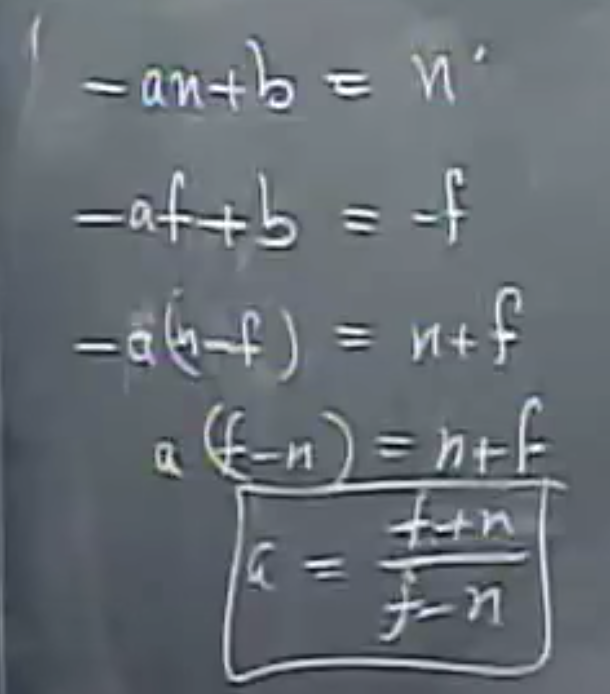 -an+b = n
-af+b = -f
-a(n-f) = n+f
a(f-n) = n+f
a = \frac{f+n}{f-n}